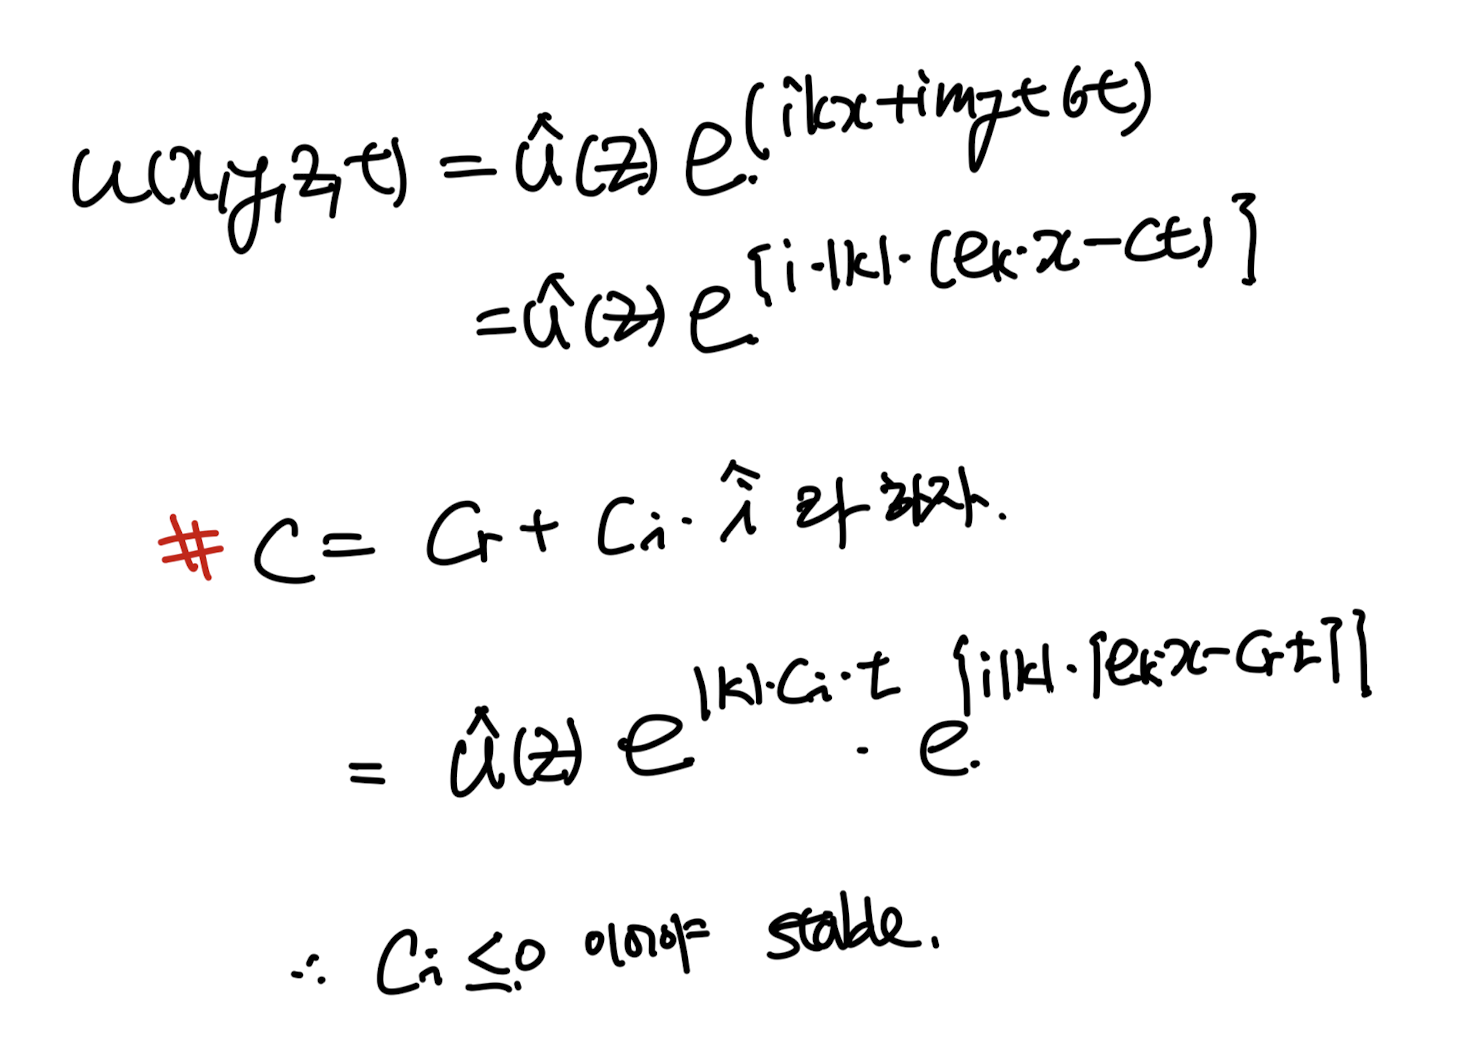 u(x,y,z,t) = û(z) e^(ikx+imy+σt)
= û(z) e^[i·|k|·(e_k·x-ct)]
# C = C_r + C_i·î 라 하자.
= û(z) e^|k|·C_i·t · e^[i|k|·[e_k·x-C_r t]]
∴ C_i ≤ 0 이어야 stable.